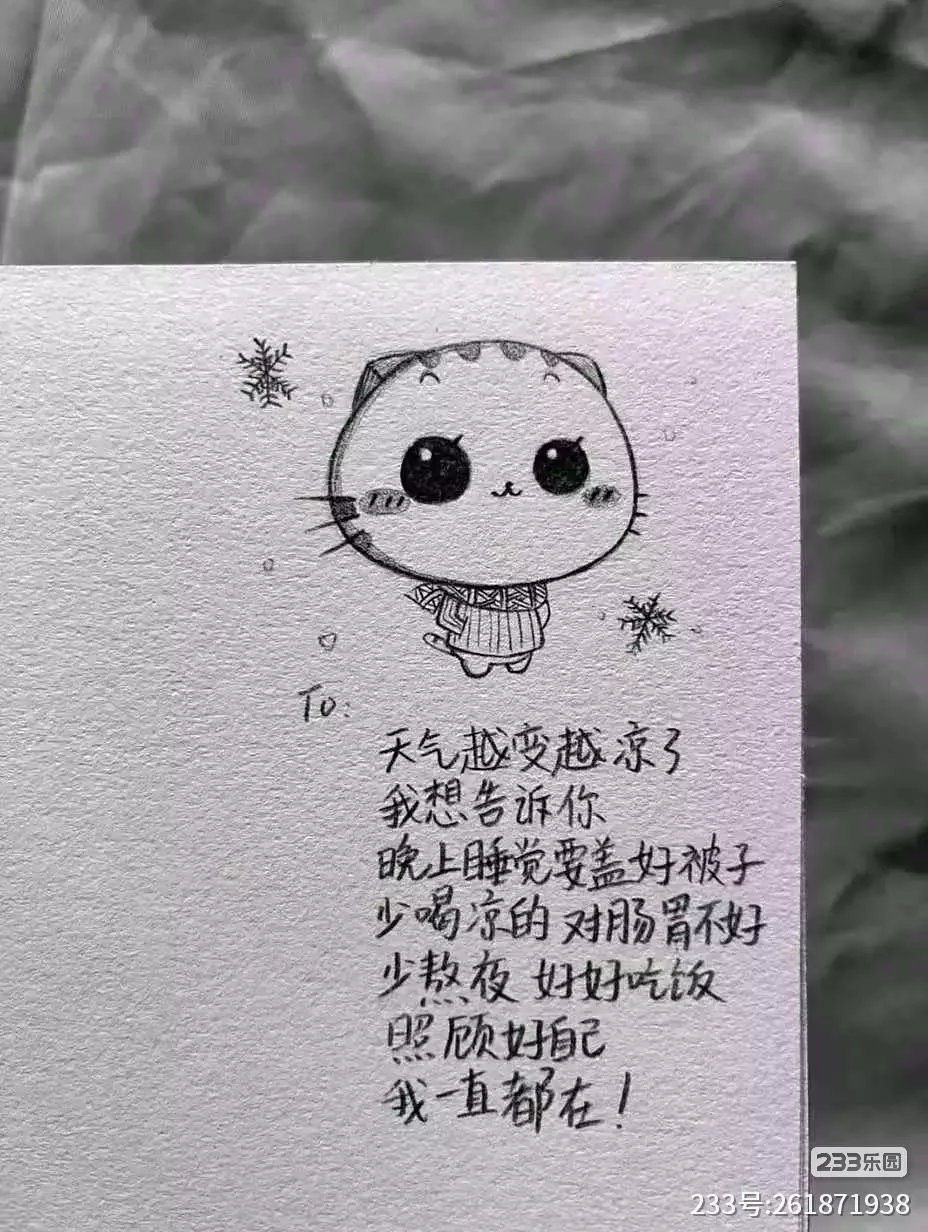 To:
天气越变越凉了
我想告诉你
晚上睡觉要盖好被子
少喝凉的 对肠胃不好
少熬夜 好好吃饭
照顾好自己
我一直都在!
233乐园
233号:261871938